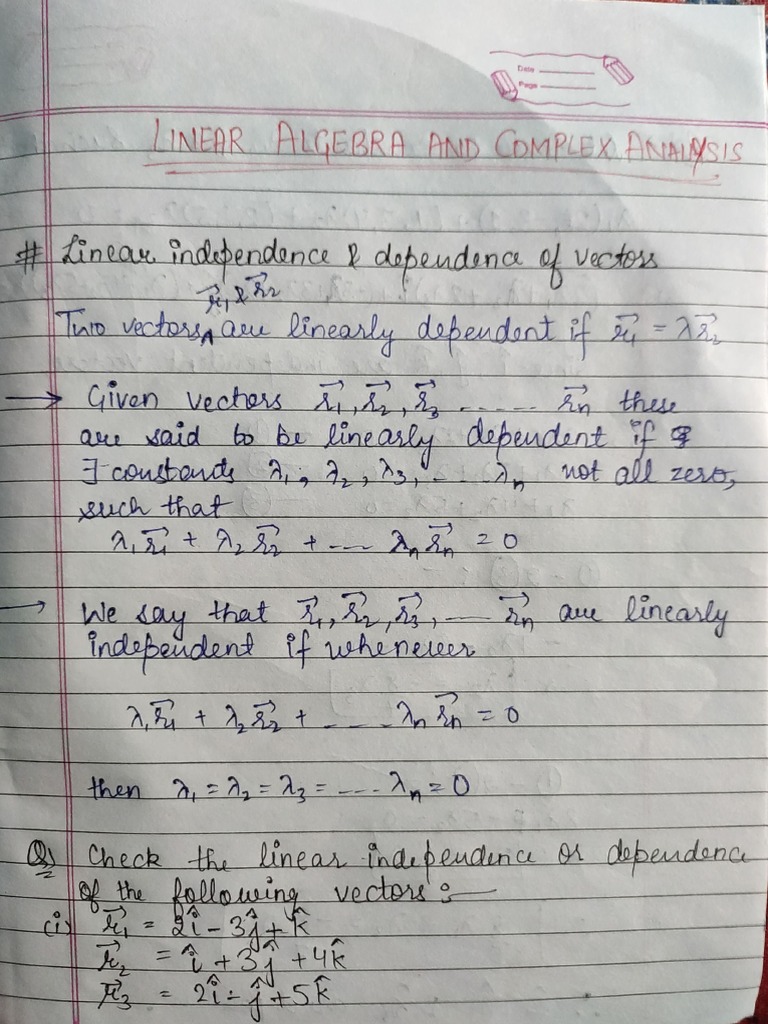 Date
Page
LINEAR ALGEBRA AND COMPLEX ANALYSIS
# Linear independence & dependence of vectors
r⃗₁ & r⃗₂
Two vectors ∧ are linearly dependent if r⃗₁ = λr⃗₂
→ Given vectors r⃗₁, r⃗₂, r⃗₃ ...... r⃗ₙ these
are said to be linearly dependent if
∃ constands λ₁, λ₂, λ₃, ... λₙ not all zero,
such that
λ₁r⃗₁ + λ₂r⃗₂ + ... λₙr⃗ₙ = 0
→ We say that r⃗₁, r⃗₂, r⃗₃, ... r⃗ₙ are linearly
independent if whenever
λ₁r⃗₁ + λ₂r⃗₂ + ..... λₙr⃗ₙ = 0
then λ₁ = λ₂ = λ₃ = .... λₙ = 0
Q) Check the linear independence or dependence
of the following vectors :—
(i) r⃗₁ = 2î - 3ĵ + k̂
r⃗₂ = î + 3ĵ + 4k̂
r⃗₃ = 2î - ĵ + 5k̂